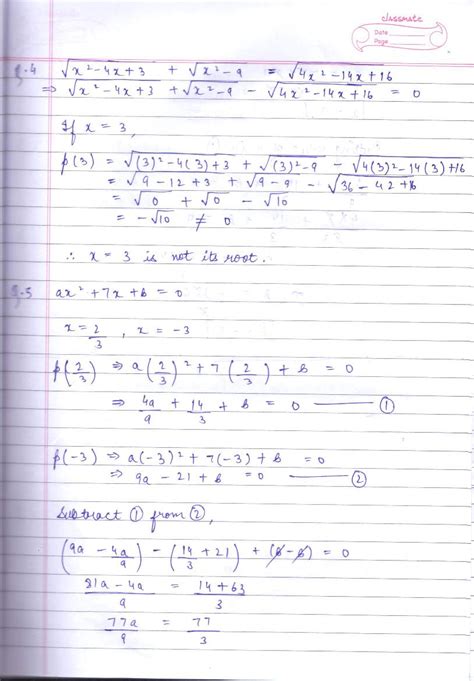 classmate
Date
Page
Q.4 √(x² - 4x + 3) + √(x² - 9) = √(4x² - 14x + 16)
⇒ √(x² - 4x + 3) + √(x² - 9) - √(4x² - 14x + 16) = 0
If x = 3,
p(3) = √((3)² - 4(3) + 3) + √((3)² - 9) - √(4(3)² - 14(3) + 16)
= √(9 - 12 + 3) + √(9 - 9) - √(36 - 42 + 16)
= √0 + √0 - √10
= -√10 ≠ 0
∴ x = 3 is not its root.
Q.5 ax² + 7x + b = 0
x = 2/3 , x = -3
p(2/3) ⇒ a(2/3)² + 7(2/3) + b = 0
⇒ 4a/9 + 14/3 + b = 0 —— ①
p(-3) ⇒ a(-3)² + 7(-3) + b = 0
⇒ 9a - 21 + b = 0 —— ②
Subtract ① from ②,
(9a - 4a/9) - (14/3 + 21) + (b - b) = 0
81a - 4a/9 = 14 + 63/3
77a/9 = 77/3